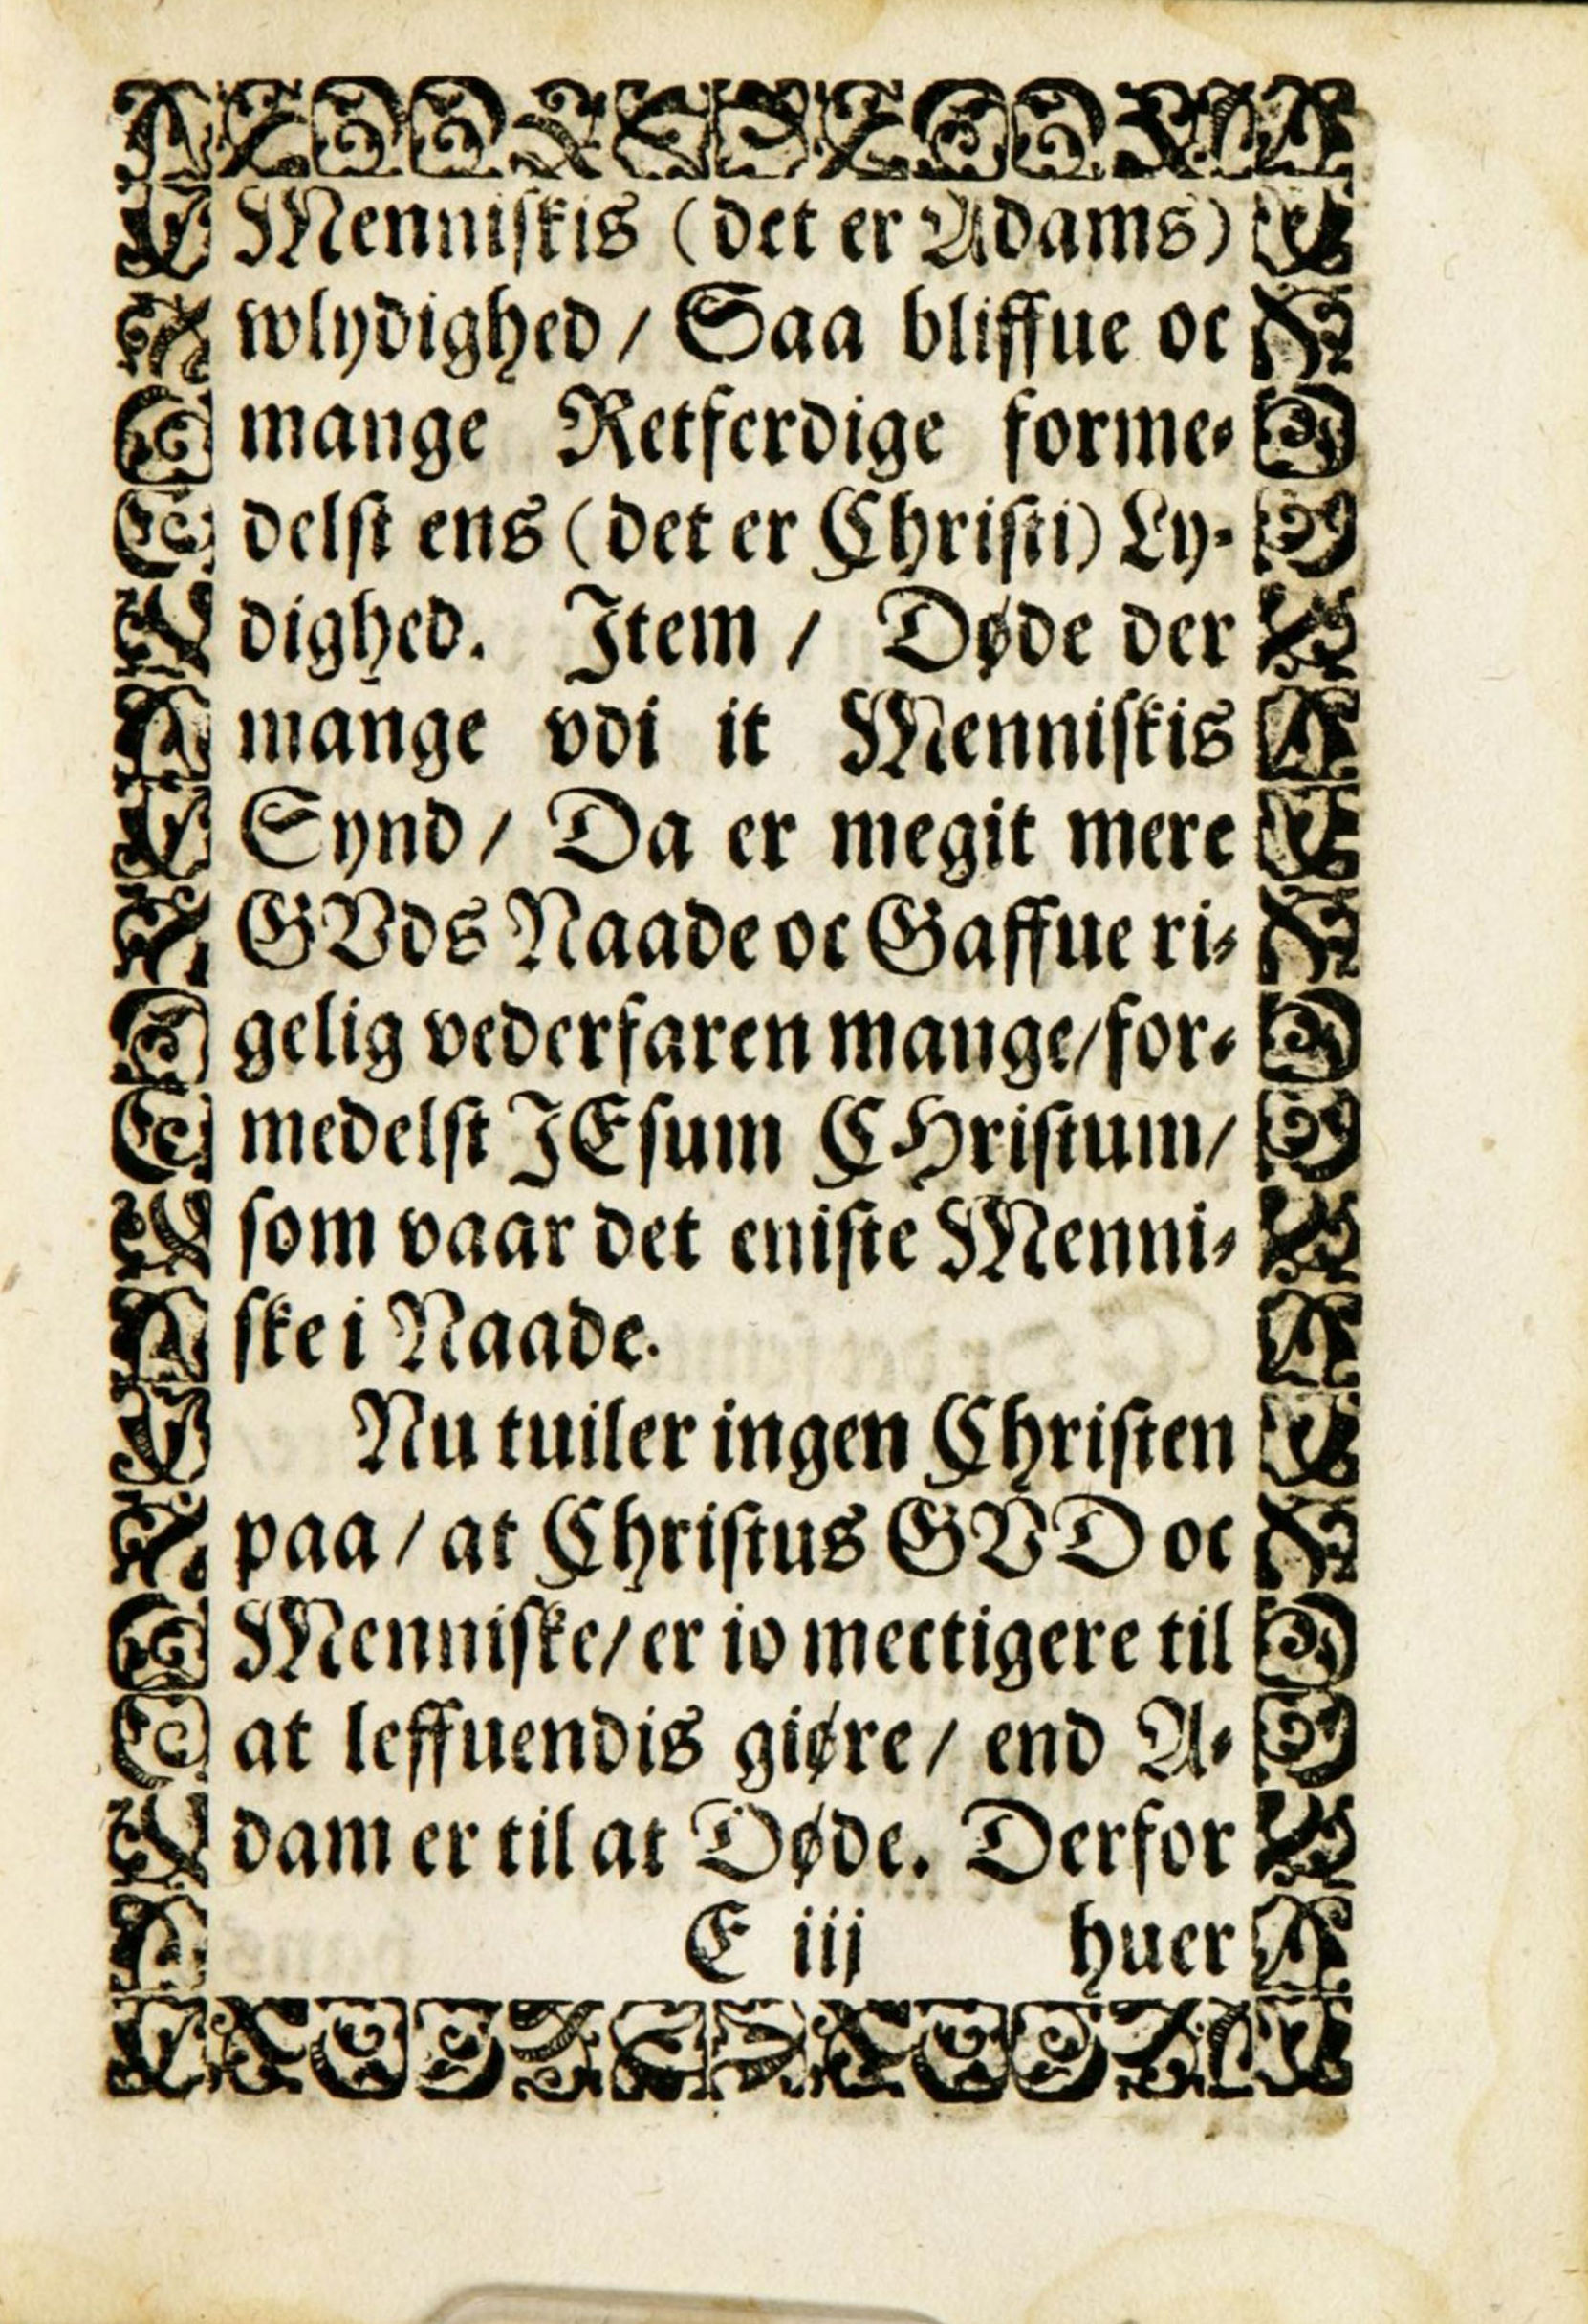 Menniskis (det er Adams)
wlydighed / Saa bliffue oc
mange Retferdige forme-
delst ens (det er Christi) Ly-
dighed. Item / Døde der
mange vdi it Menniskis
Synd / Da er megit mere
GVds Naade oc Gaffue ri-
gelig vederfaren mange / for-
medelst JEsum CHristum /
som vaar det eniste Menni-
ske i Naade.
Nu tuiler ingen Christen
paa / at Christus GVD oc
Menniske / er io mectigere til
at leffuendis giøre / end A-
dam er til at Døde. Derfor
E iij huer